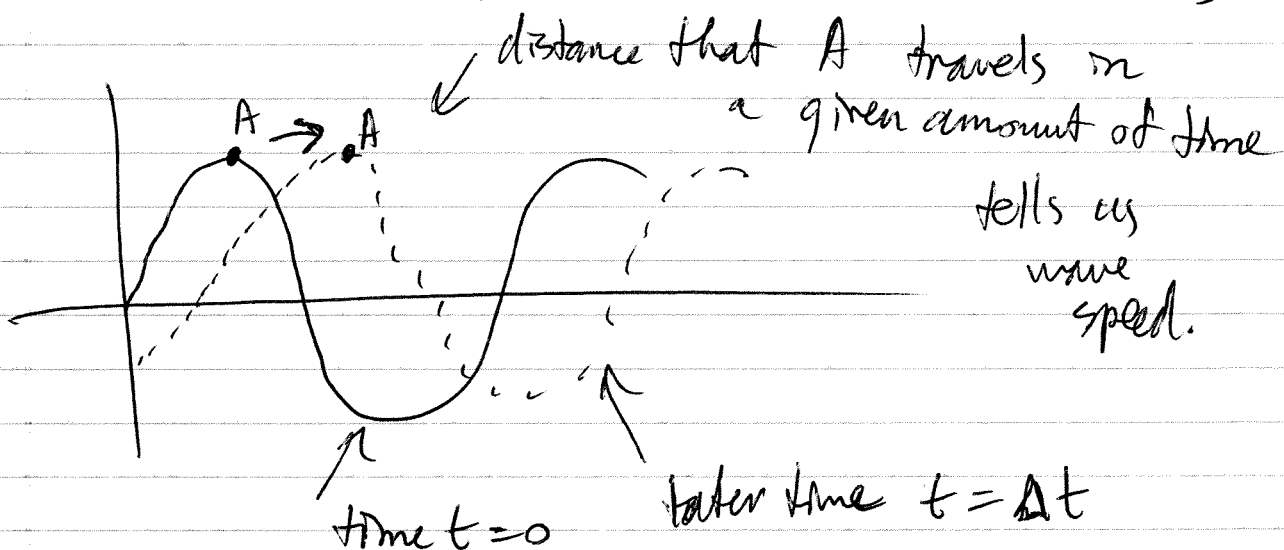 distance that A travels in
a given amount of time
tells us
wave
speed.
A → A
time t = 0
later time t = Δt